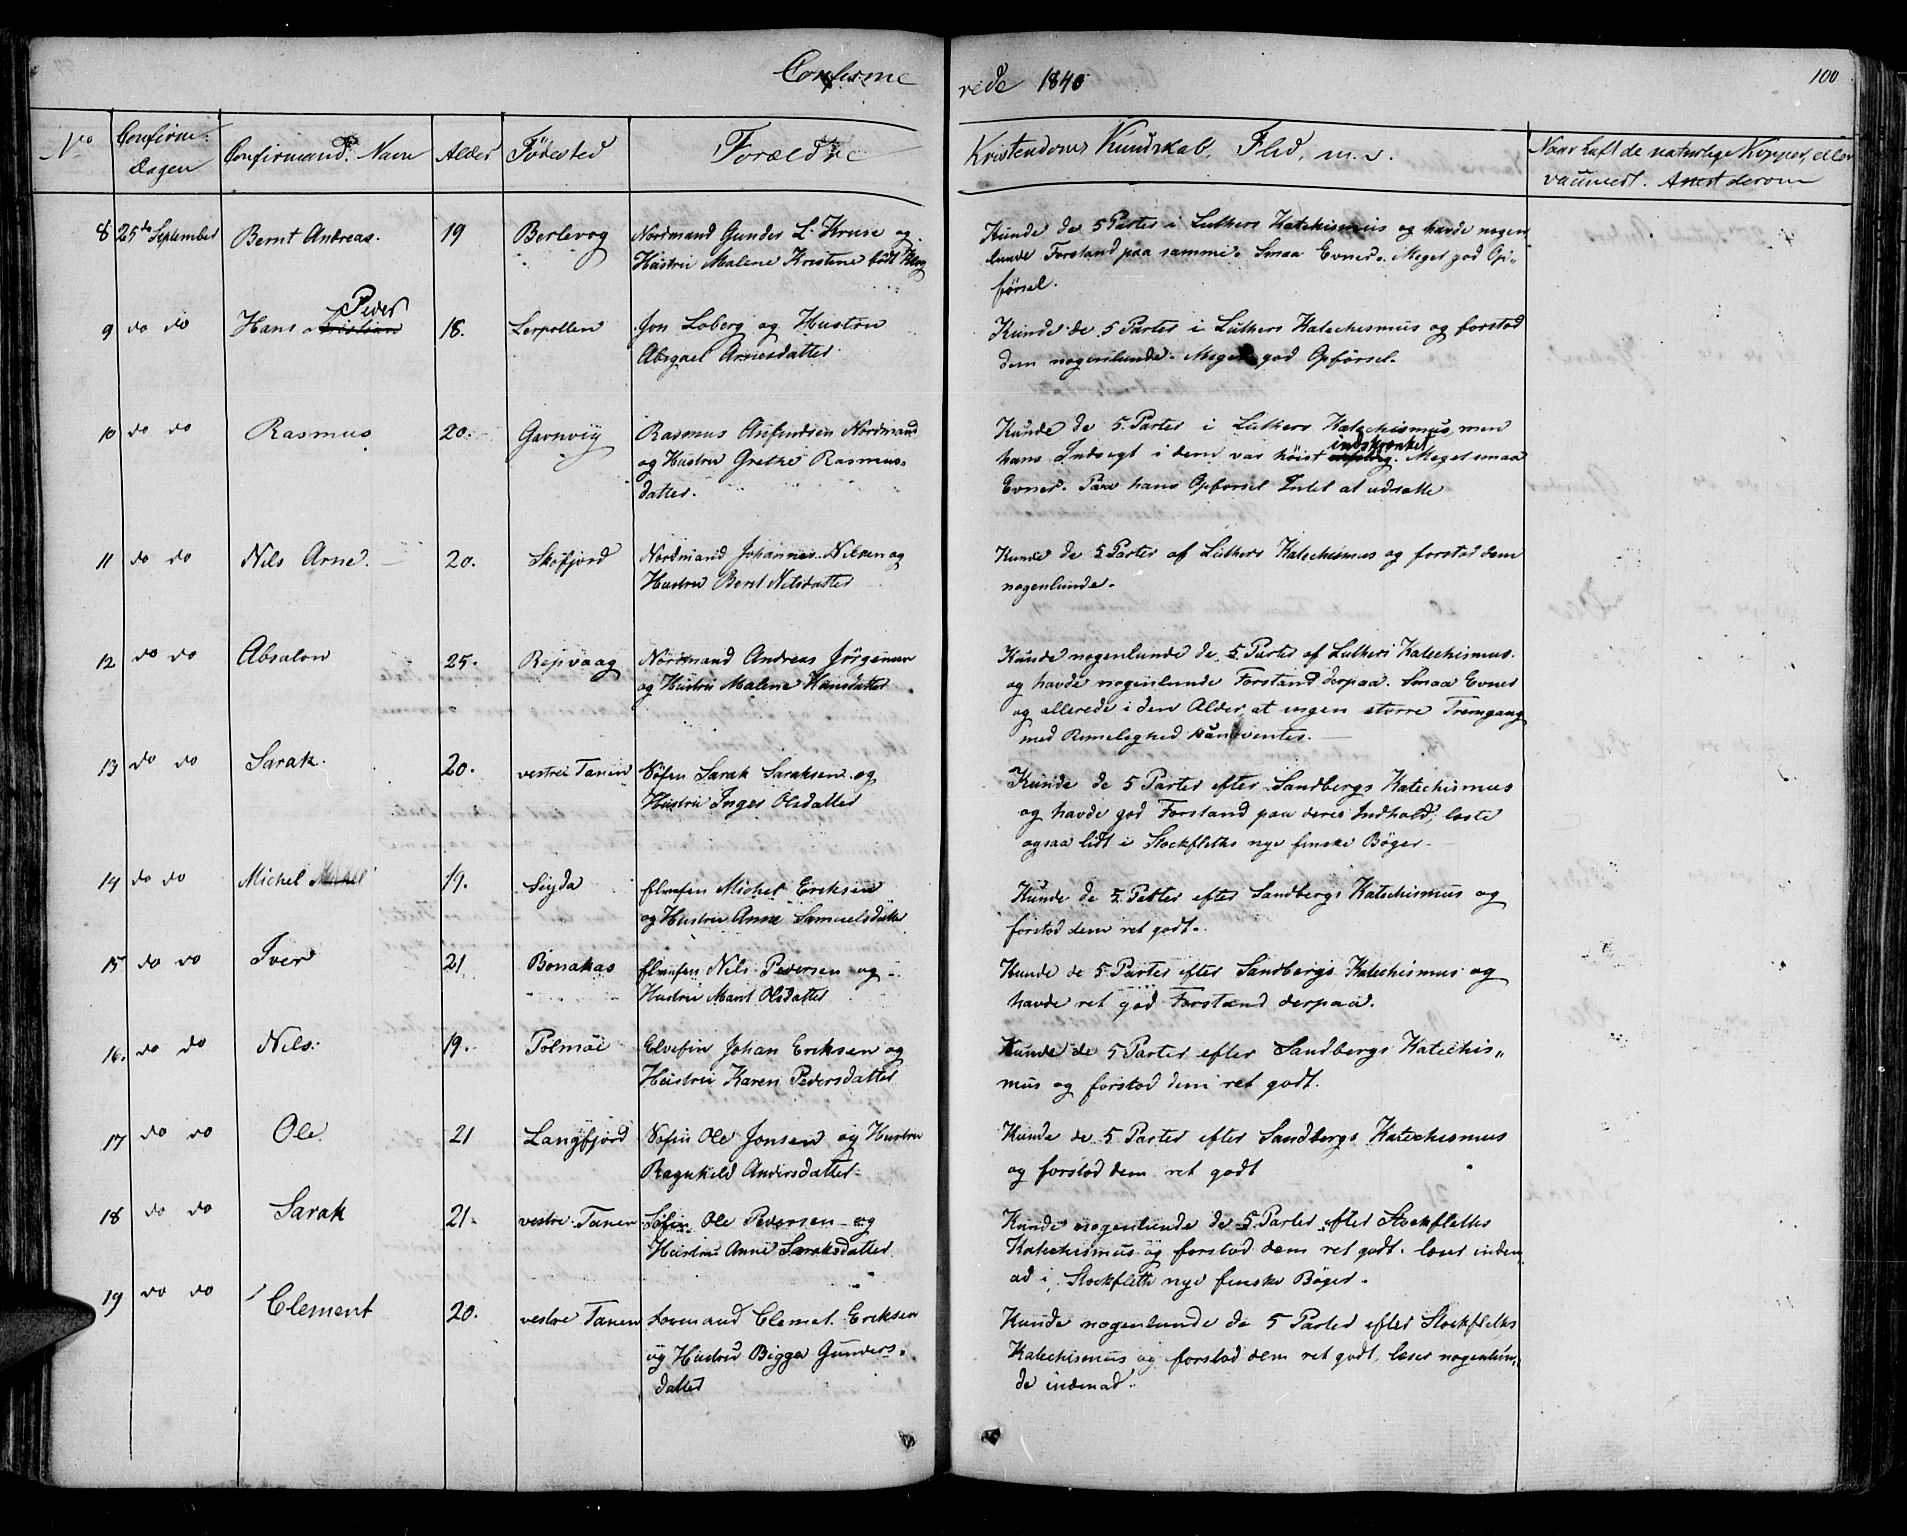 Confirme
rede 1840
100
No
Confirm:
dagen
Confirmand: Navn
Alder
Födested
Forældre
Kristendoms Kundskab, Flid, m. v.
Naar haft de naturlige Kopper, eller
vaccineret. Attest derom
8 25de September Bernt Andreas. 19 Berlevog Nordmand Gunder L. Kruse og
Hustru Malene Kristine født
Kunde de 5 Parter i Luthers Katekismus og havde nogen
lunde Forstand paa samme. Smaa Evner. Meget god Op„
førsel.
9 do do Hans Peder 18. Lerpollen Jon Loberg og Hustru
Abegael Arnesdatter.
Kunde de 5 Parter i Luthers Katechismus og forstod
dem nogenlunde. Meget god Opførsel.
10 do do Rasmus 20. Gavnviig Rasmus Nordmand
og Hustru Grethe Rasmus„
datter.
Kunde de 5. Parter i Luthers Katechismus, men
indskrænket
hans Indsigt i dem var höist. Meget smaa
Evner. Paa hans Opførsel Intet at udsætte
11 do do Nils Arne. 20. Skøfjord Nordmand Johannes Nilsen og
Hustru Beret Nilsdatter
Kunde de 5 Parter af Luthers Katechismus og forstod dem
nogenlunde.
12 do do Absalon 25. Repvaag Nordmand Andreas Jörgensen
og Hustru Malene Hansdatter
Kunde nogenlunde de 5. Parter af Luthers Katechismus.
og havde nogenlunde Forstand derpaa. Smaa Evner
og allerede i den Alder, at ingen större Fremgang
med Rimelighed kan ventes.
13 do do Sarak. 20. vestre Tanen Söfin Sarak Saraksen og
Hustru Inger Olsdatter
Kunde de 5 Parter efter Sandbergs Katechismus
og havde god Forstand paa deres Indhold, læste
ogsaa lidt i Stockfleths nye finske Böger.
14 do do Michel 19. Seyda Elvefin Michel Eriksen
og Hustru Anne Samuelsdatter
Kunde de 5. Parter efter Sandbergs Katechismus og
forstod dem ret godt.
15 do do Iver 21 Bonakas Elvefin Nils Pedersen og
Hustru Marit Olsdatter
Kunde de 5 Parter efter Sandbergs Katechismus og
havde ret god Forstand derpaa.
16. do do Nils. 19. Polmöi Elvefin Johan Eriksen og
Hustru Karen Pedersdatter
Kunde de 5 Parter efter Sandbergs Katechis„
mus og forstod dem ret godt.
17 do do Ole. 21 Langfjord Söfin Ole Jonsen og Hustru
Ragnhild Andersdatter
Kunde de 5 Parter efter Sandbergs Katechismus
og forstod dem ret godt
18 do do Sarak 21. vestre Tanen Söfin Ole Pedersen og
Hustru Anne Saraksdatter
Kunde nogenlunde de 5 Parter efter Stockfleths
Katechismus og forstod dem ret godt. læser inden„
ad i Stockfleths nye finske Böger.
19 do do Clement 20. vestre Tanen Clemet Eriksen
og Hustru Bigga Gunders„
datter
Kunde nogenlunde de 5 Parter efter Stockfleths
Katechismus og forstod dem ret godt, læser nogenlun„
de indenad.